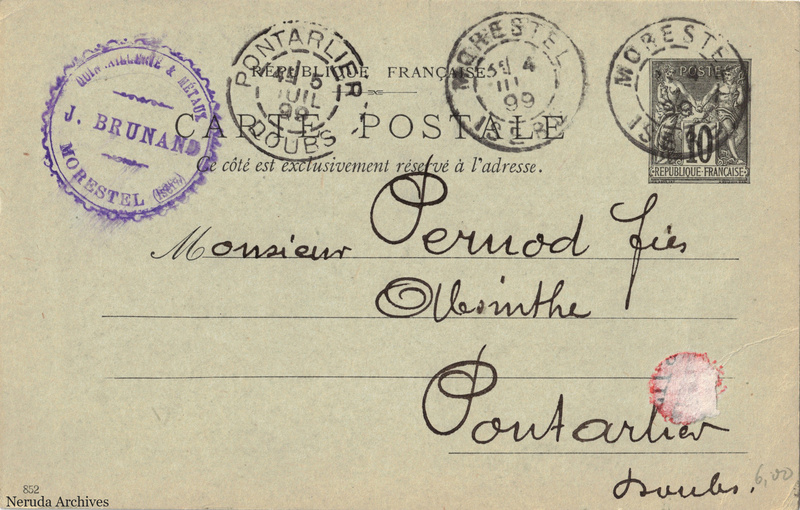 QUINCAILLERIE & MÉTAUX
J. BRUNAND
MORESTEL (Isère)
PONTARLIER
5
JUIL
99
DOUBS
MORESTEL
4
99
ISÈRE
MORESTEL
99
POSTE
10
REPUBLIQUE FRANÇAISE
RÉPUBLIQUE FRANÇAISE
CARTE POSTALE
Ce côté est exclusivement réservé à l'adresse.
Monsieur Pernod fils
Absinthe
Pontarlier
Doubs.
6,00
852
Neruda Archives